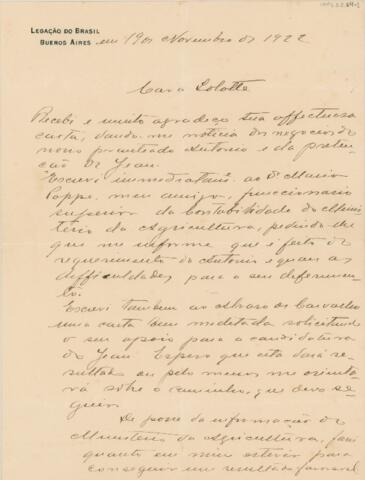 LEGAÇÃO DO BRASIL
BUENOS AIRES
em 19 de Novembro de 1922
Cara Lolotte
Recebi e muito agradeço sua affectuosa
carta, dando-me noticia dos negocios do
nosso pranteado Antonio e da preten-
ção de Jean.
Escrevi immediatam. ao Dr Mario
Poppe, meu amigo, funccionario
superior da Contabilidade do Minis-
terio da Agricultura, pedindo-lhe
que me informe que é feito do
requerimento do Antonio e quaes as
difficuldades para o seu deferimen-
to.
Escrevi tambem ao Alvaro de Carvalho
uma carta bem meditada solicitando
o seu apoio para a candidatura
do Jean. Espero que esta dará re-
sultado ou pelo menos me orienta-
rá sobre o caminho, que devo se-
guir.
De posse da informação do
Ministerio da Agricultura, farei
quanto em mim estiver para
conseguir um resultado favoravel